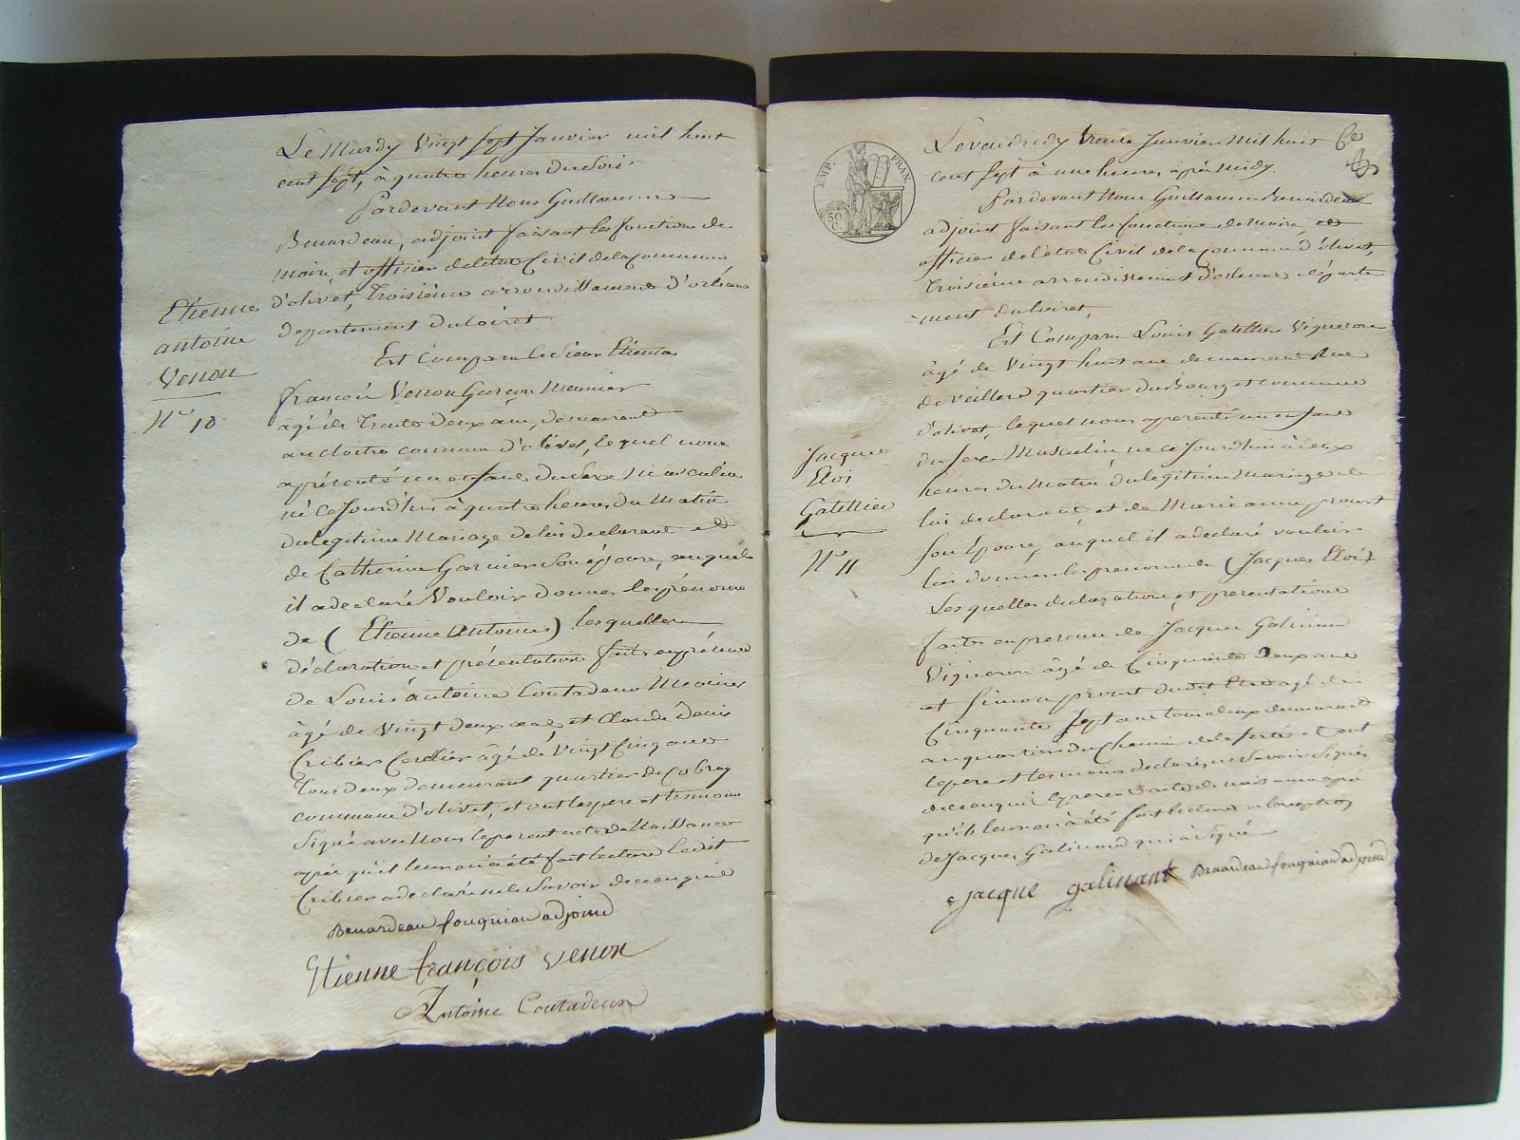 Le Mardy Vingt Sept Janvier mil huit
cent Sept, à quatre heures du Soir
Pardevant Nous Guillaume
Benardeau, adjoint faisant les fonctions de
maire, et officier de l'état Civil de la commune
d'olivet, troisième arrondissement d'orléans
departement du loiret
Etienne
antoine
Venon
N° 10
Est Comparu le Sieur Etienne
françois Venon Garçon Meunier
âgé de trente deux ans, demeurant
au cloitre commune d'olivet, lequel nous
a présenté un enfant du Sexe Masculin
né Ce Jourd'hui à quatre heures du Matin
du legitime Mariage de lui declarant et
de Catherine Garnier Son épouse, auquel
il a declaré Vouloir donner les prénoms
de (Etienne Antoine) lesquelles
déclaration et présentation faits en présence
de Louis antoine Coutadeur Meunier
âgé de Vingt deux ans et Claude Denis
Cribier Cordier âgé de Vingt Cinq ans
tous deux demeurant quartier de Cobray
commune d'olivet, et ont les pere et temoins
Signé avec Nous le present acte de Naissance
après qu'il leur en a été fait lecture ledit
Cribier a declaré ne le Savoir de ce enquis
Benardeau fougniau adjoind
Etienne françois Venon
Antoine Coutadeur
EMP. FRAN.
50
C.
6e
Le vendredy trente Janvier Mil huit
cent Sept à une heure après Midy.
Pardevant Nous Guillaume Benardeau
adjoint faisant les fonctions de maire, et
officier de l'état Civil de la Commune d'olivet,
troisième arrondissement d'orleans departe
ment du loiret,
Est Comparu Louis Gatellier Vigneron
âgé de Vingt huit ans demeurant Rue
de veillard quartier du Bourg et commune
d'olivet, lequel nous a presenté un enfant
du Sexe Masculin né ce Jourd'hui à deux
heures du Matin du legitime Mariage de
lui declarant et de Marie anne provost
Son Epouse, auquel il a declaré vouloir
lui donner les prenoms de (Jacques Eloi)
Jacques
Eloi
Gatellier
N° 11
Lesquelles declaration et presentation
faits en presence de Jacques Galinand
Vigneron âgé de Cinquante Deux ans
et Simon provost age de
Cinquante Sept ans tous deux demeurant
au quartier du Chemin de la ferté et ont
le pere et temoins declaré ne Savoir Signer
de ce enquis le present acte de naissance après
qu'il leur en a été fait lecture a l'exception
de Jacques Galinand qui a Signé
Jacque galinant Benardeau fougniau adjoind